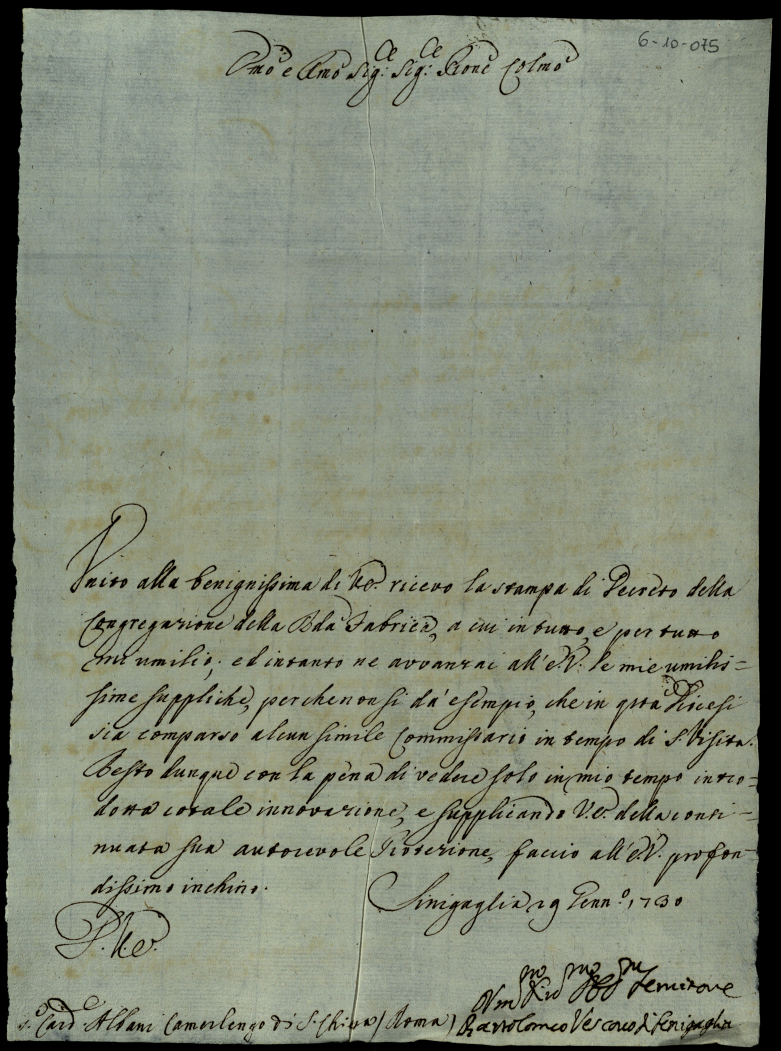 6-10-075
Emo e Rmo Sig:re Sig:re Prone Colmo
Unito alla benignissima di V.E. ricevo la stampa di Decreto della
Congregazione della Rda Fabrica, a cui in tutto, e per tutto
mi umilio; ed intanto ne avvanzai all'E.V. le mie umilis=
sime suppliche, perche non si dà esempio, che in qta Diocesi
sia comparso alcun simile Commissario in tempo di S. Visita.
Resto dunque con la pena di vedere solo in mio tempo intro=
dotta cotale innovazione, e supplicando V.E. della conti=
nuata sua autorevole Protezione, faccio all'E.V. profon=
dissimo inchino.
Sinigaglia 19 Genn.o 1730
D.V.E.
S.r Card.e Albani Camerlengo di S. Chiesa (Roma)
Um.mo Servitore
Bartolomeo Vescovo di Senigaglia